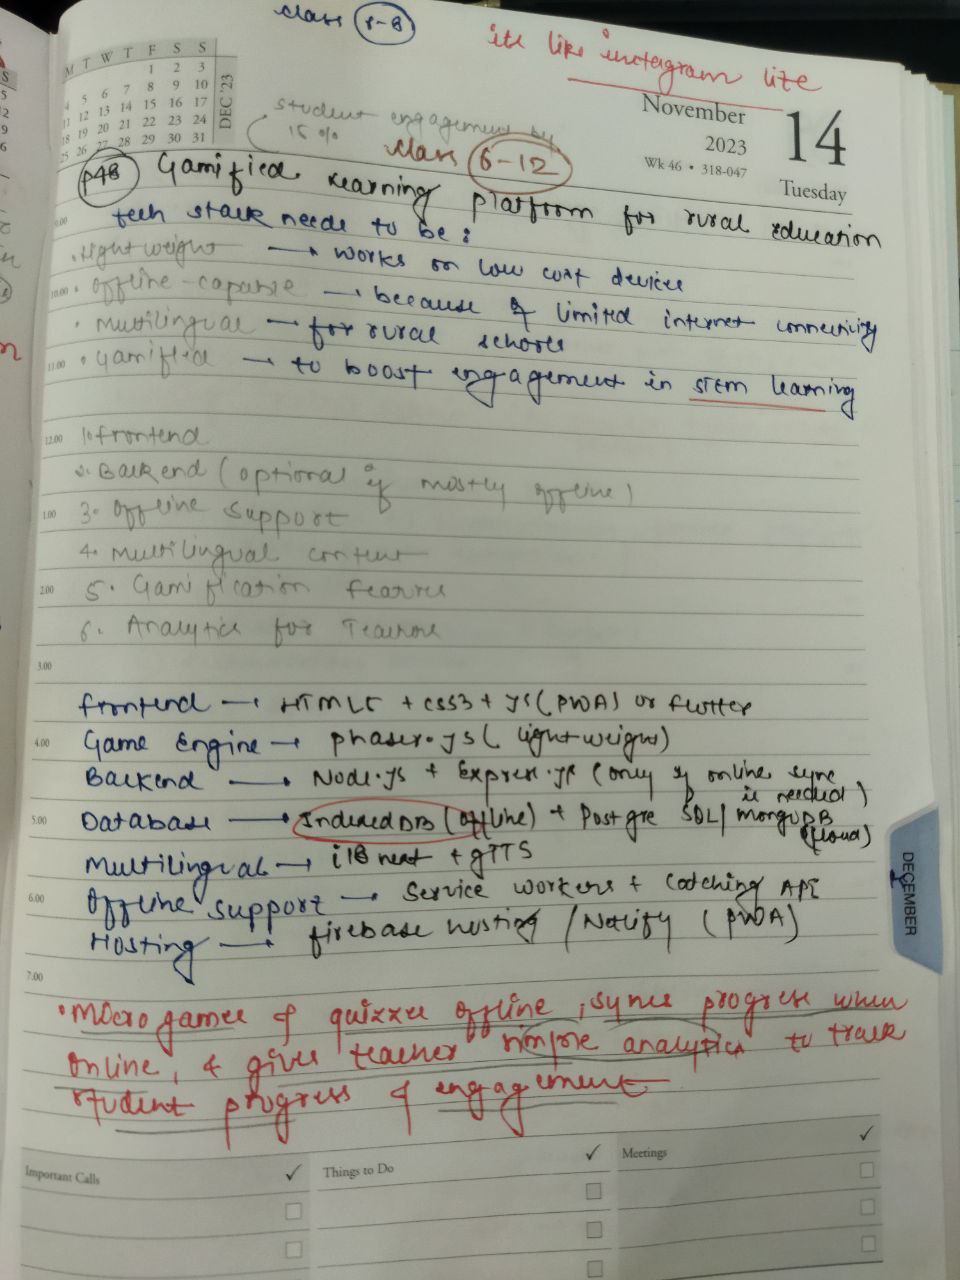 class 8-8
its like instagram lite
M T W T F S S
1 2 3
4 5 6 7 8 9 10
11 12 13 14 15 16 17
18 19 20 21 22 23 24
25 26 27 28 29 30 31
DEC '23
November
2023
Wk 46 • 318-047
14
Tuesday
student engagement by
15 %
class 6-12
Gamified Learning platform for rural education
tech stack needs to be:
• lightweight → works on low cost devices
• offline-capable → because of limited internet connectivity
• Multilingual → for rural schools
• Gamified → to boost engagement in STEM learning
1. frontend
2. Backend (optional if mostly offline)
3. Offline support
4. Multilingual content
5. Gamification
6. Analytics for
frontend → HTML5 + CSS3 + JS (PWA) or flutter
Game Engine → phaser.js (lightweight)
Backend → Node.js + Express.js (only if online sync
is needed)
Database → IndexedDB (offline) + Postgre SQL/ MongoDB
(cloud)
Multilingual → i18 next + gTTS
Offline support → Service workers + Catching API
Hosting → firebase hosting / Netlify (PWA)
• Micro games & quizzes offline, syncs progress when
online, & gives teacher simple analytics to track
student progress & engagement
9.00
10.00
11.00
12.00
1.00
2.00
3.00
4.00
5.00
6.00
7.00
DECEMBER
Important Calls ✓
Things to Do ✓
Meetings ✓